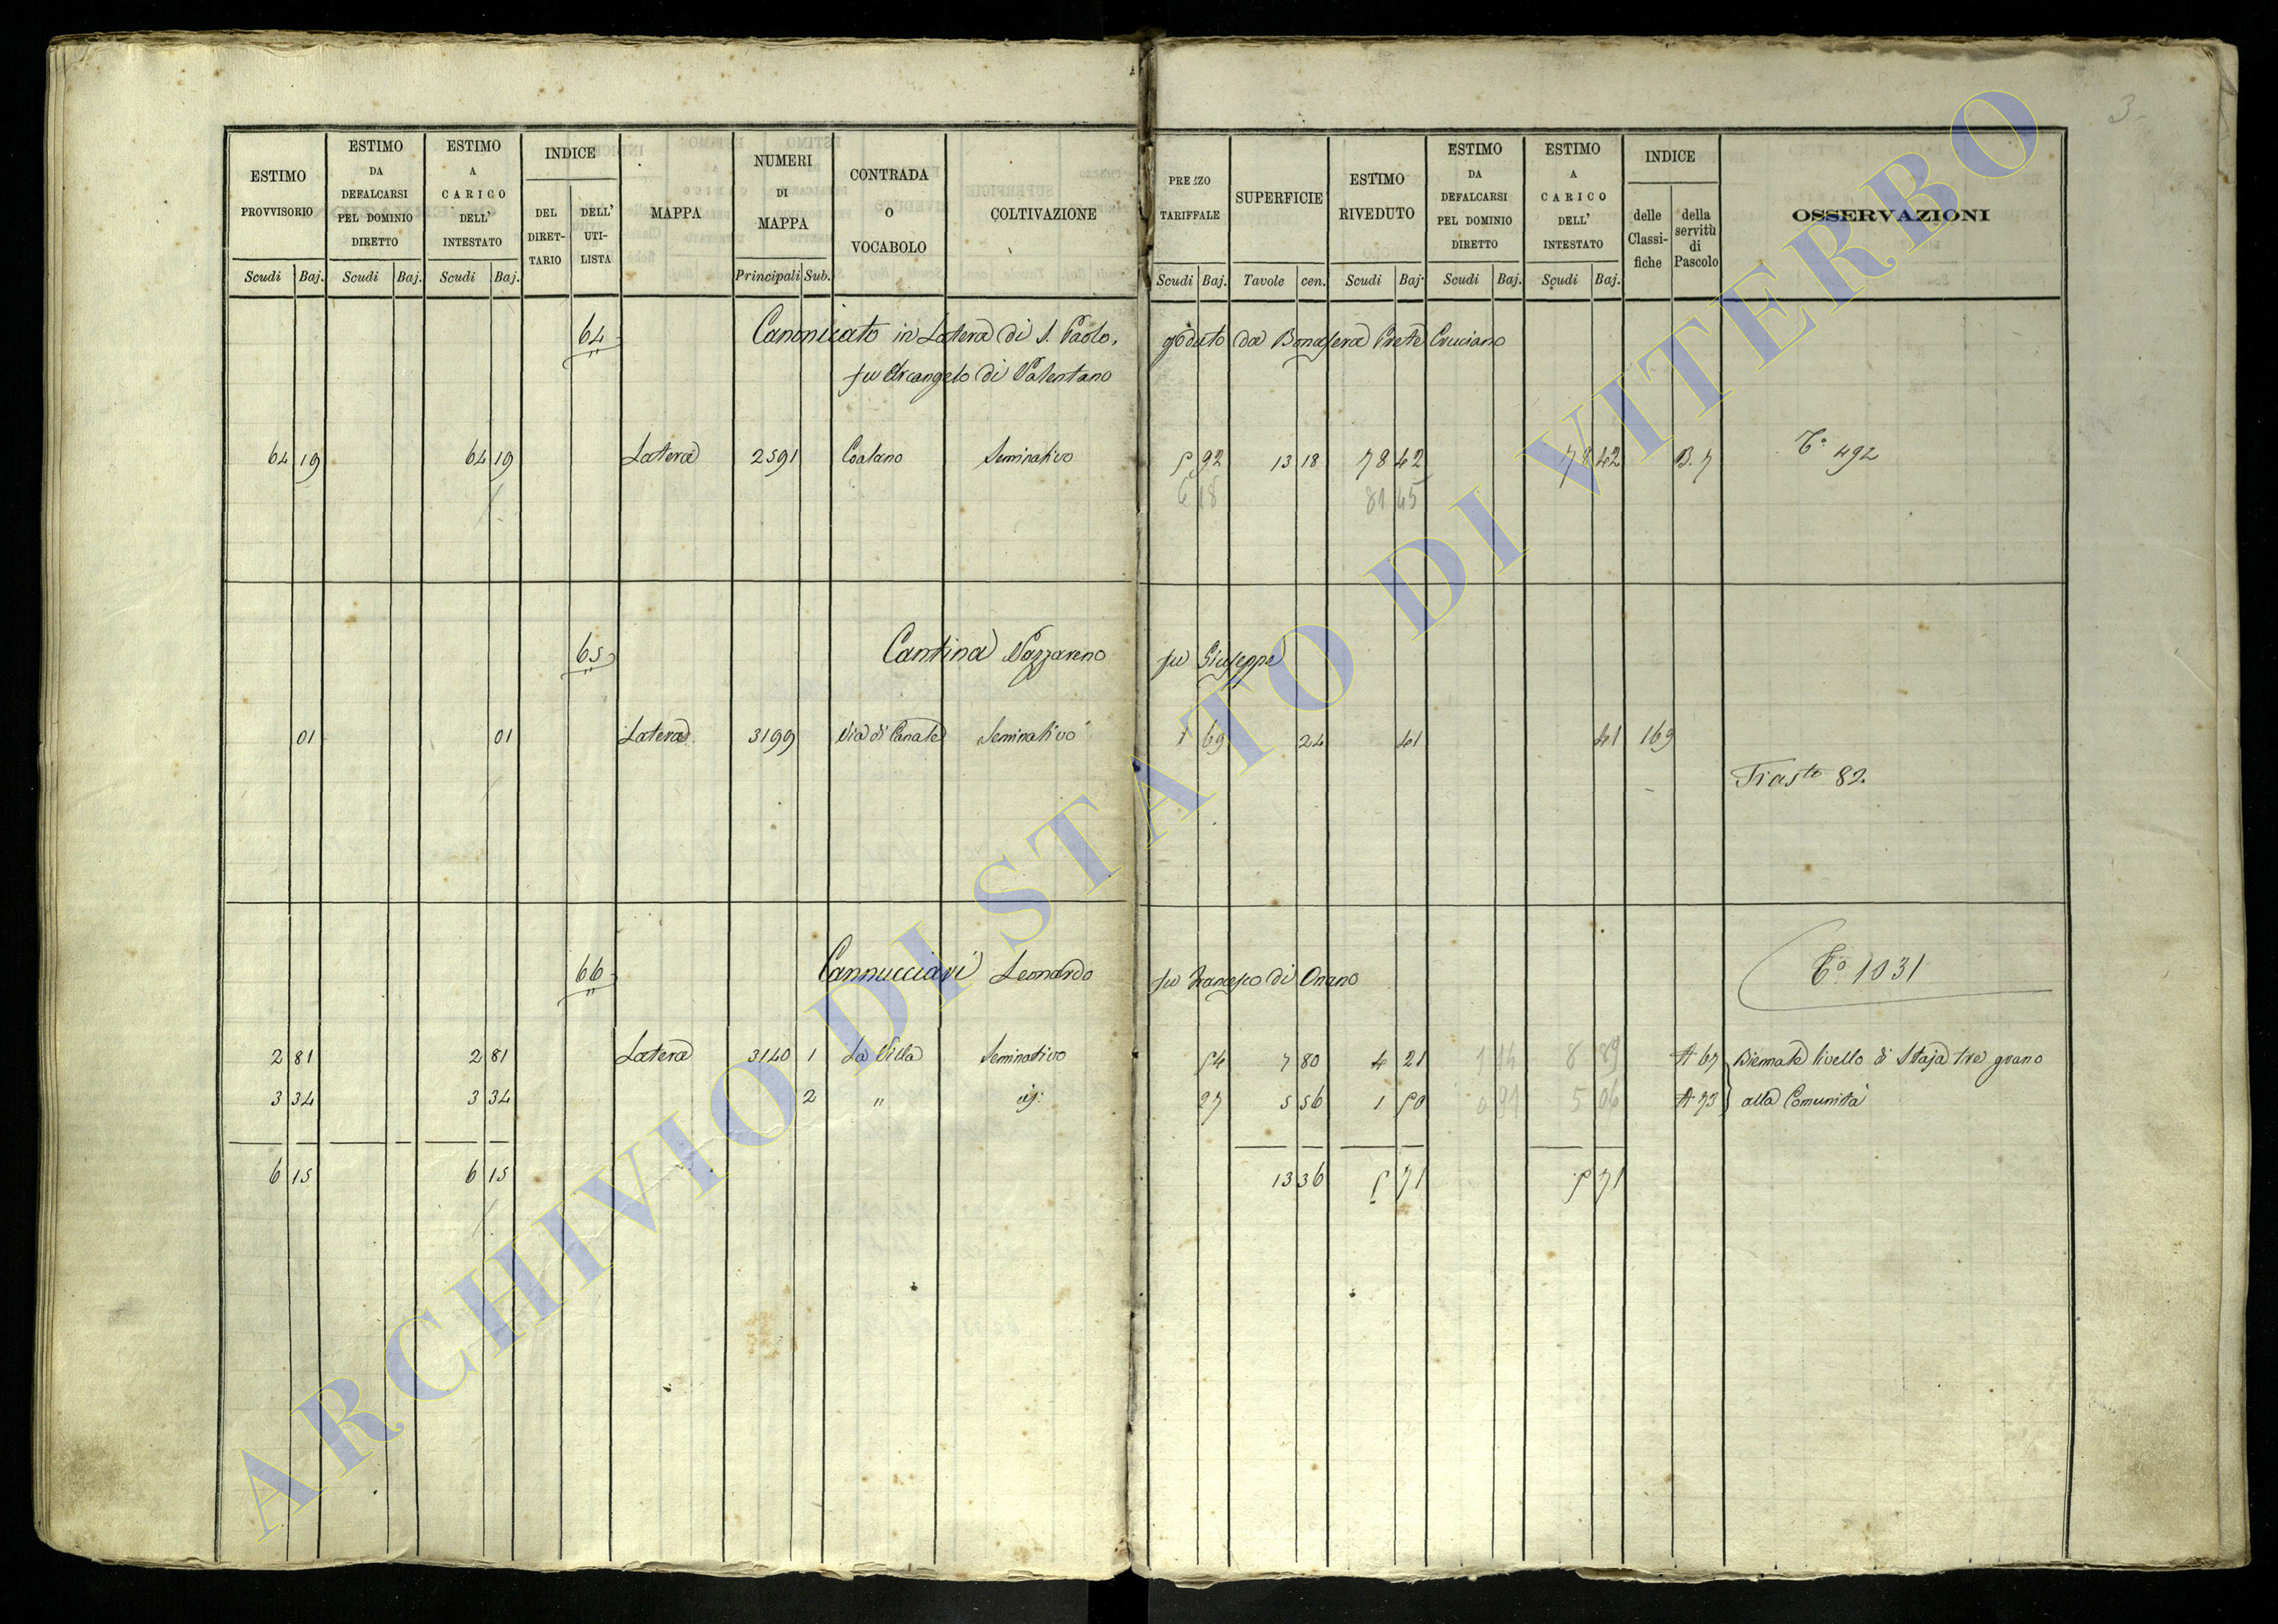 3
ESTIMO PROVVISORIO Scudi Baj. ESTIMO DA DEFALCARSI PEL DOMINIO DIRETTO Scudi Baj. ESTIMO A CARICO DELL' INTESTATO Scudi Baj. INDICE DEL DIRETTARIO DELL' UTILISTA MAPPA NUMERI DI MAPPA Principali Sub. CONTRADA O VOCABOLO COLTIVAZIONE PREZZO TARIFFALE Scudi Baj. SUPERFICIE Tavole cen. ESTIMO RIVEDUTO Scudi Baj. ESTIMO DA DEFALCARSI PEL DOMINIO DIRETTO Scudi Baj. ESTIMO A CARICO DELL' INTESTATO Scudi Baj. INDICE delle Classifiche della servitù di Pascolo OSSERVAZIONI
64 Canonicato in Latera di S. Paolo, goduto da Bonafera Prete Cruciano
fu Arcangelo di Valentano
64 19 64 19 Latera 2591 Coatano Seminativo 5 92 13 18 78 42 78 42 B. 7 T.° 492
6 18 81 45
65 Cantina Nazzareno fu Giuseppe
01 01 Latera 3199 Via di Canale Seminativo 1 69 24 41 41 169
Trasto 82
66 Cannucciari Leonardo fu Francesco di Onano T.° 1031
2 81 2 81 Latera 3140 1 La Villa Seminativo 54 7 80 4 21 8 89 A 67 Biennale livello di Staja tre grano
3 34 3 34 2 " id. 27 5 56 1 50 0 91 5 06 A 73 alla Comunità
6 15 6 15 13 36 5 71 5 71
ARCHIVIO DI STATO DI VITERBO